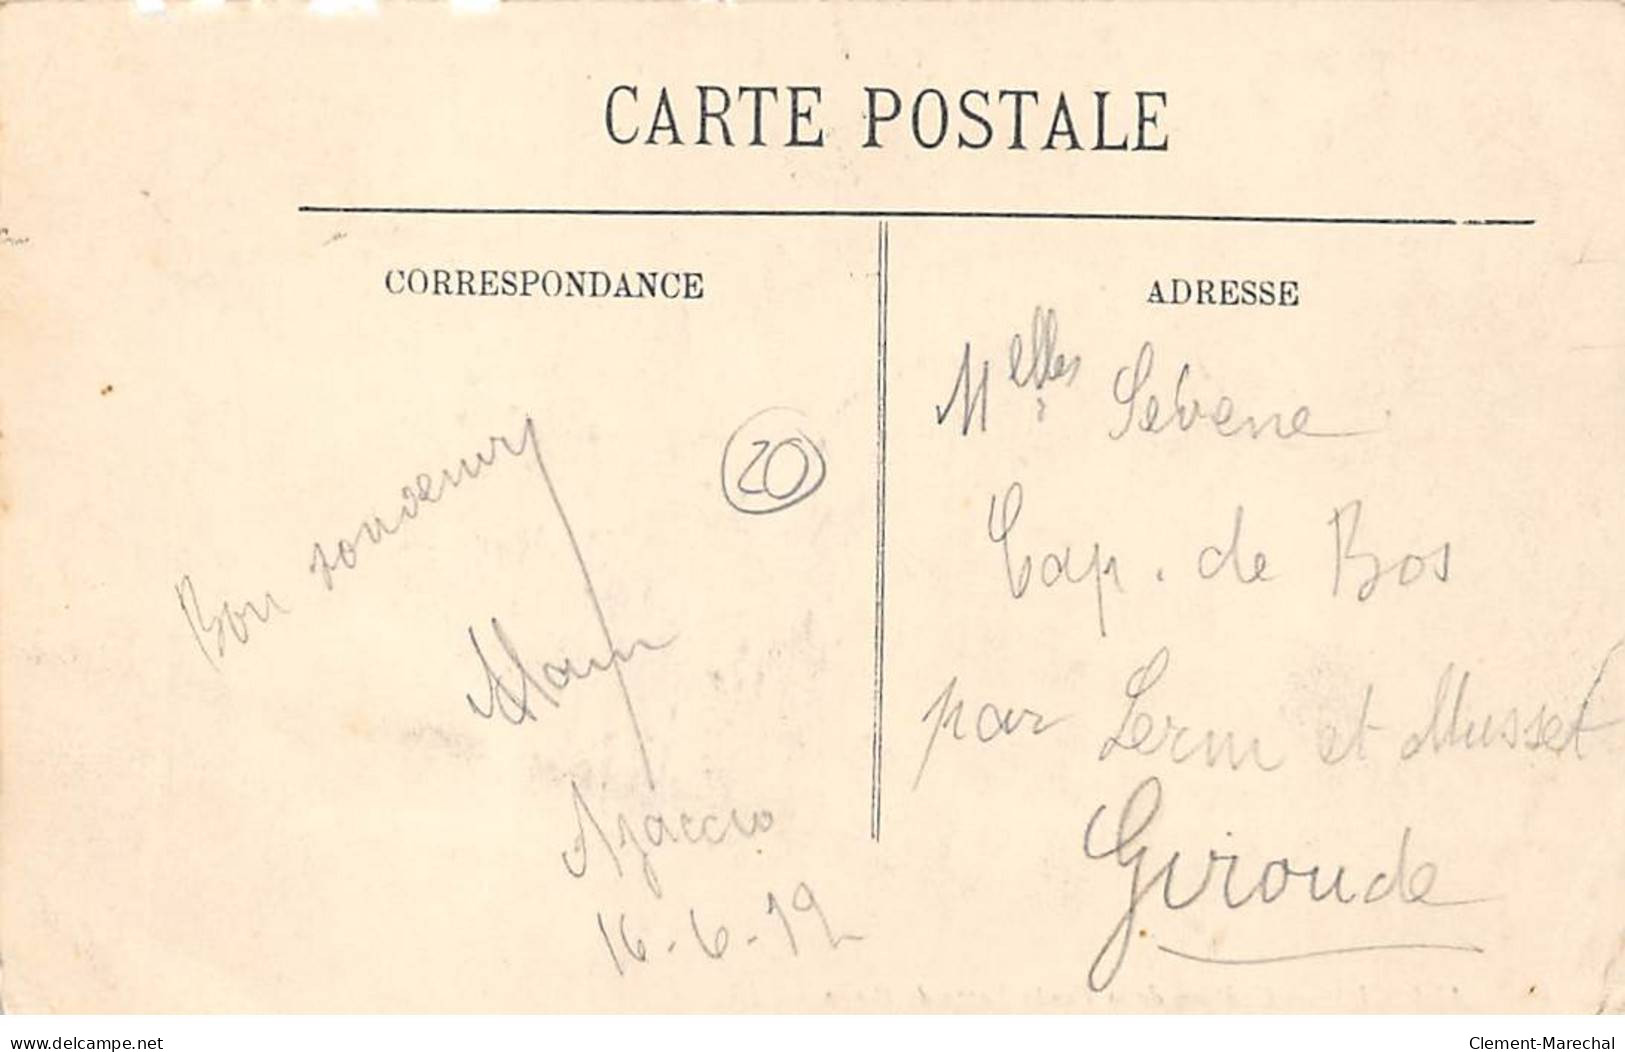 CARTE POSTALE
CORRESPONDANCE
Bon souvenir
Alain
Ajaccio
16-6-12
20
ADRESSE
Melles Sevene
Cap. de Bos
par Lerm et Musset
Gironde
www.delcampe.net
Clement-Marechal